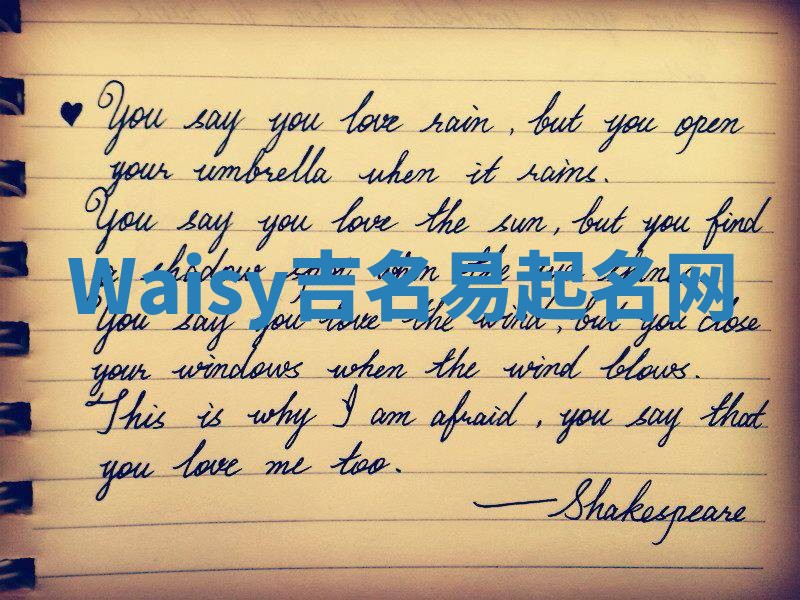 ♥ You say you love rain, but you open
your umbrella when it rains.
You say you love the sun, but you find
a shadow spot when the sun shines.
Waisy吉名易起名网
You say you love the wind, but you close
your windows when the wind blows.
This is why I am afraid, you say that
you love me too.
—Shakespeare